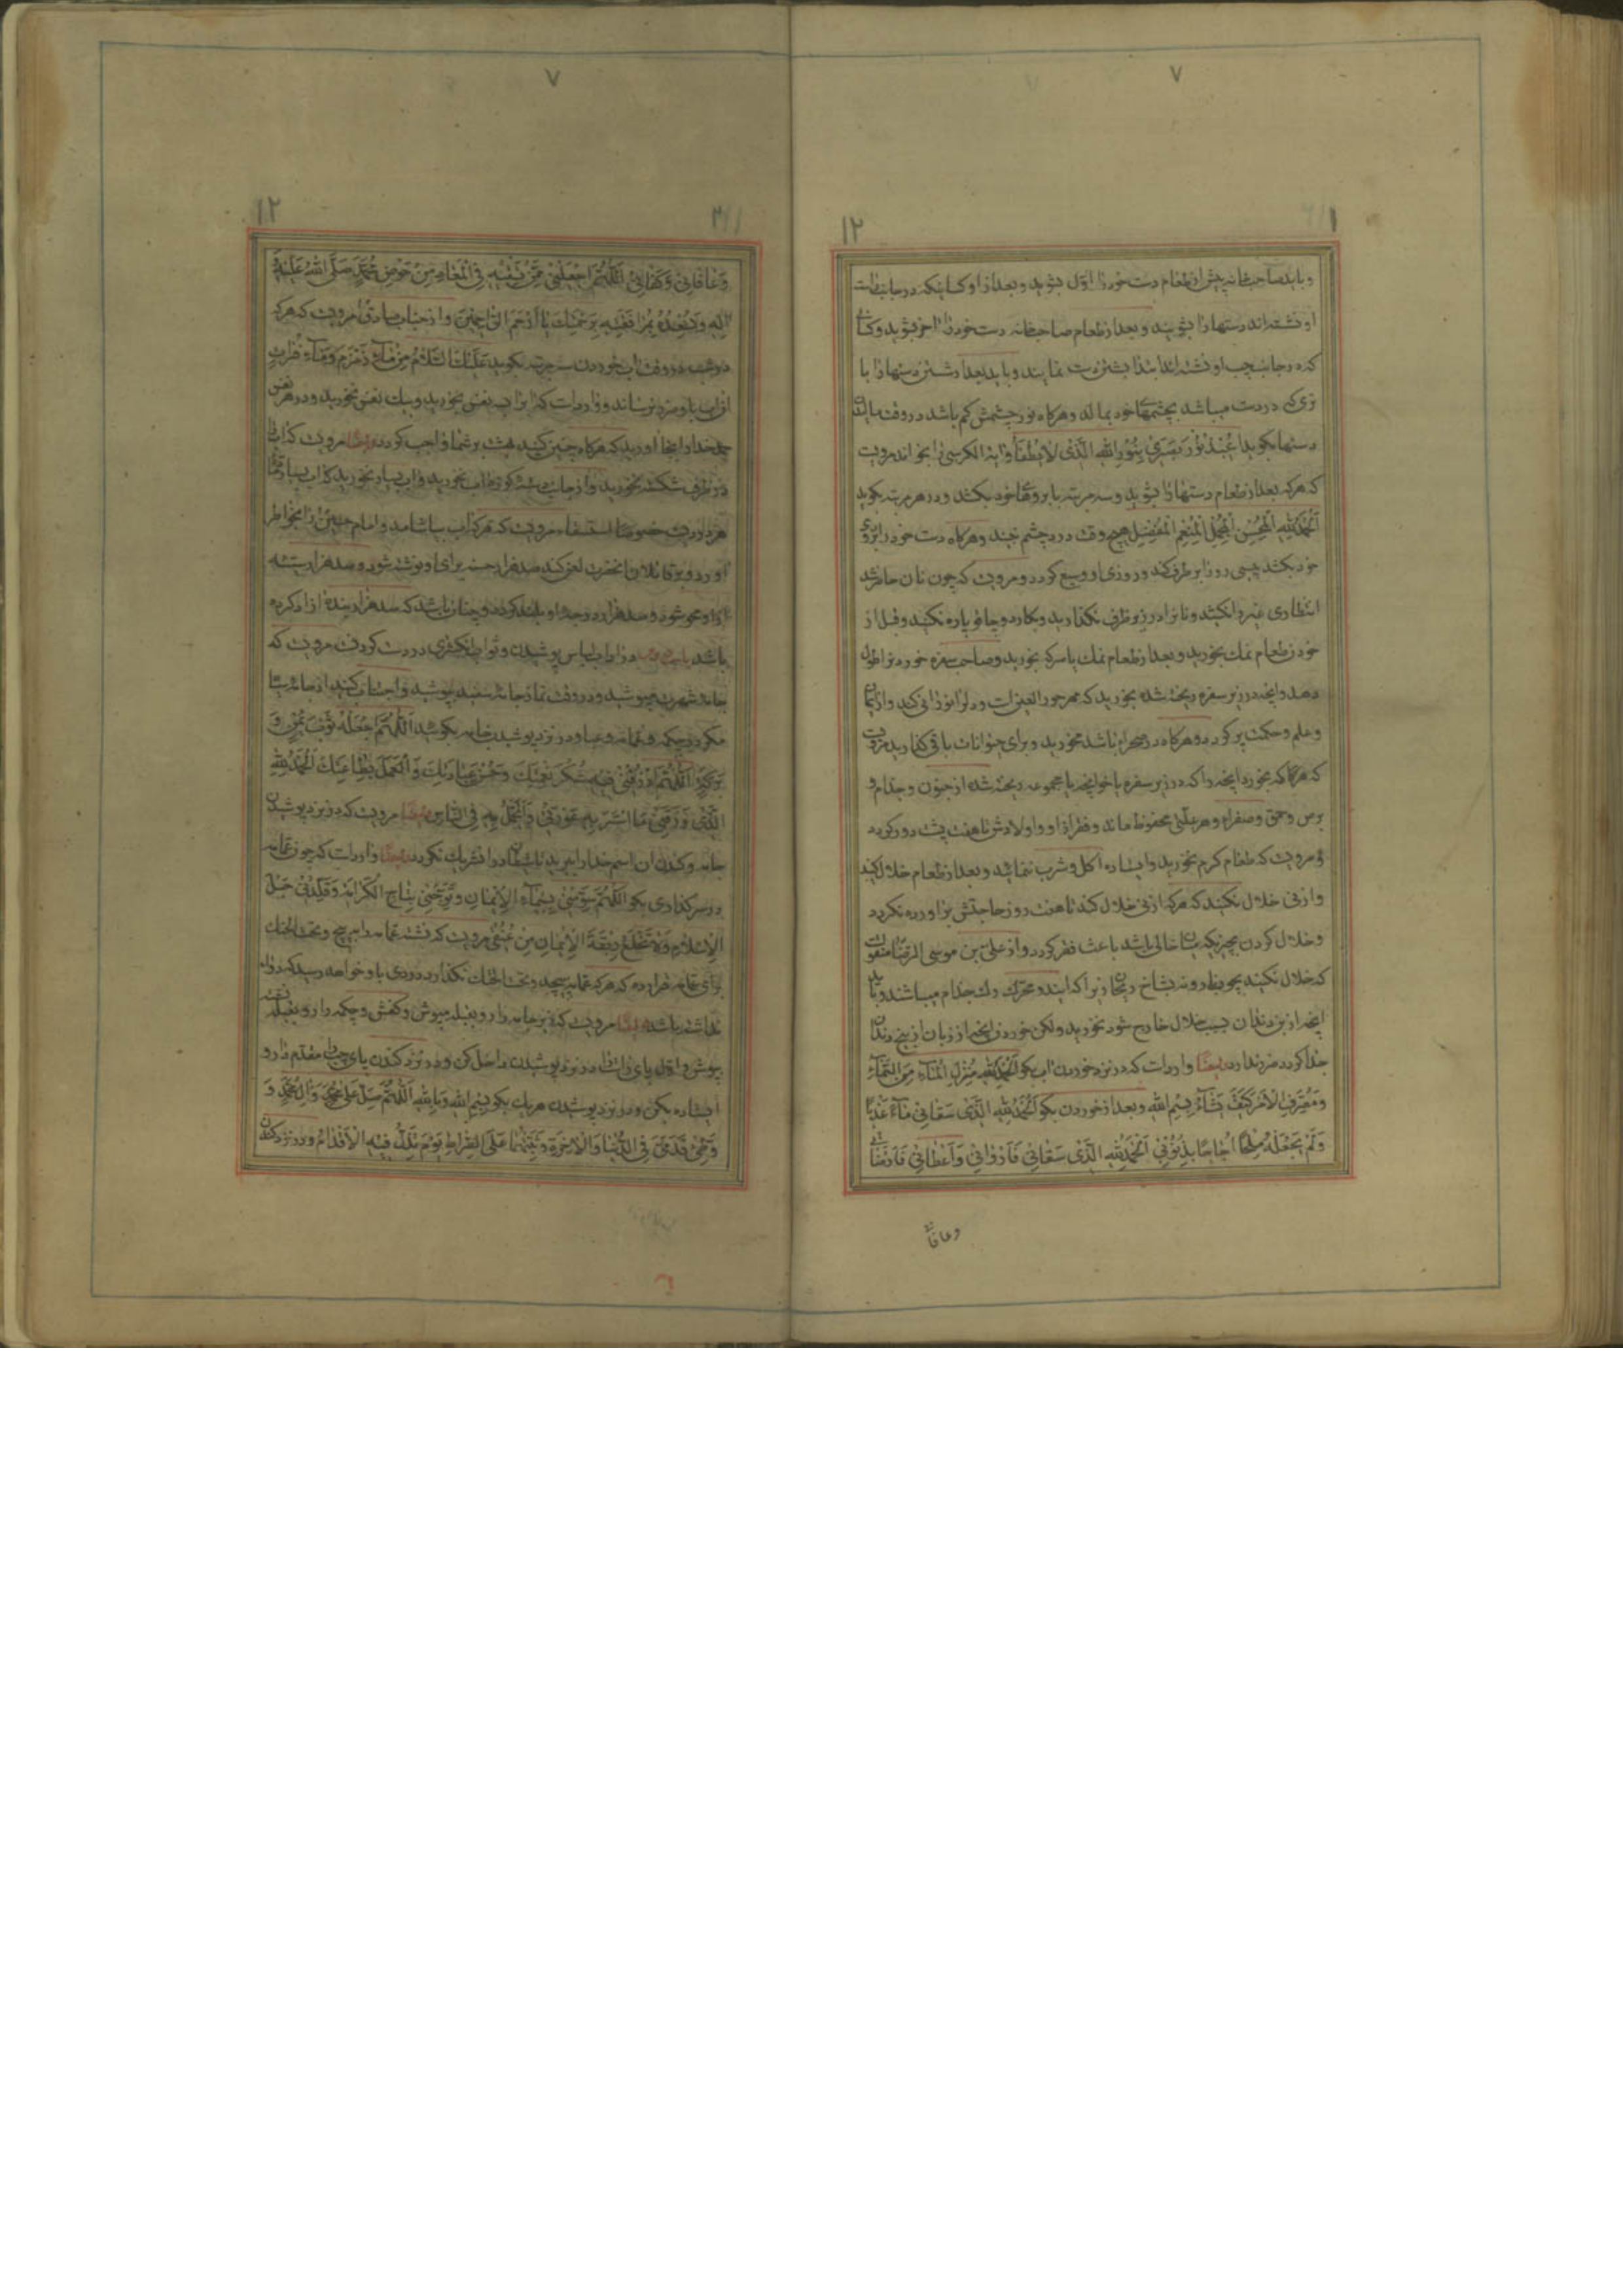 ۷
۱
۱۲
و باید صاحبخانه پیش از طعام دست خود را اول بشوید و بعد از او کسانیکه در جانب راست
او نشسته‌اند دستها را بشویند و بعد از طعام صاحبخانه دست خود را آخر بشوید و
که در جانب چپ او نشسته‌اند ابتدا بشستن دست نمایند و باید بعد از شستن دستها را با
تری که در دست میباشد بچشمهای خود بمالد و هرگاه نور چشمش کم باشد در وقت مالیدن
دستها بگوید اعیذ نور بصری بنور الله الذی لا یطفا و آیة الکرسی را بخواند مرویست
که هرکه بعد از طعام دستها را بشوید و سه مرتبه بابروهای خود بکشد و در هر مرتبه بگوید
اَلْحَمْدُ لِلّٰهِ الْمُحْسِنِ الْمُجْمِلِ الْمُنْعِمِ الْمُفْضِلِ هیچ وقت درد چشم نبیند و هرگاه دست خود را بروی
خود بکشد پیسی رو را برطرف کند و روزی او وسیع گردد و مرویست که چون نان حاضر شد
انتظاری غیر را نکشید و نان را در زیر ظرف نگذارید و بکارد و چاقو پاره نکنید و قبل از
خوردن طعام نمک بخورید و بعد از طعام نمک یا سرکه بخورید و صاحب سفره خوردن را طول
دهد و آنچه در زیر سفره ریخته شده بخورید که مهر حور العین است و دل را نورانی کند و از ایمان
و علم و حکمت پر گردد و هرگاه در صحرا باشد مخورید و برای حیوانات باقی گذارید مرویست
که هرگاه که بخورد آنچه را که در زیر سفره یا خوانچه یا مجموعه ریخته شده از جنون و جذام و
برص و حمق و صفراء و هر بلائی محفوظ ماند و فقر از او و اولادش تا هفت پشت دور گردد
و مرویست که طعام گرم نخورید و ایستاده اکل و شرب ننمائید و بعد از طعام خلال کنید
و از نی خلال نکنید که هرکه از نی خلال کند تا هفت روز حاجتش برآورده نگردد
و خلال کردن بچیزیکه میانش خالی باشد باعث فقر گردد و از علی بن موسی الرضا منقولست
که خلال نکنید بچوب انار و نه بشاخ ریحان زیرا که ایندو محرک رگ جذام میباشند و باید
آنچه از بن دندان بسبب خلال خارج شود نخورید ولکن خوردن آنچه از زبان از بیخ دندان
جدا گردد ضرر ندارد ایضا وارد است که در نزد خوردن آب بگو اَلْحَمْدُ لِلّٰهِ مُنْزِلِ الْمٰاءِ مِنَ السَّمٰاءِ
وَ مُصَرِّفِ الْاَمْرِ کَیْفَ یَشٰاءُ بِسْمِ اللهِ و بعد از خوردن بگو اَلْحَمْدُ لِلّٰهِ الَّذی سَقانی مٰاءً عَذْبًا
وَ لَمْ یَجْعَلْهُ مِلْحًا اُجٰاجًا بِذُنُوبی اَلْحَمْدُ لِلّٰهِ الَّذی سَقٰانی فَاَرْوٰانی وَ اَعْطٰانی فَاَرْضٰانی
وعافانی
۷
۱۲
وَ عٰافٰانی وَ کَفٰانی اَللّٰهُمَّ اجْعَلْنی مِمَّنْ تَسْقیهِ فِی الْمَعٰادِ مِنْ حَوْضِ مُحَمَّدٍ صَلَّی اللهُ عَلَیْهِ وَ
آلِهِ وَ تُسْعِدُهُ بِمُرٰافَقَتِهِ بِرَحْمَتِکَ یٰا اَرْحَمَ الرّٰاحِمینَ و از جناب صادق مرویست که هرکه
در شب در وقت آب خوردن سه مرتبه بگوید عَلَیْکَ السَّلامُ مِنْ مٰاءِ زَمْزَمَ وَ مٰاءِ فُرٰاتٍ
آن آب باو ضرر نرساند و وارد است که آب را بسه نفس بخورید و بیک نفس نخورید و در هر نفس
حمد خدا را بجا آورید که هرگاه چنین کنید بهشت بر شما واجب گردد ایضا مرویست که آب را
در ظرف شکسته نخورید و از جانب دسته کوزه آب نخورید و آب بسیار نخورید که آب بسیار
هر دردیست خصوصا استسقاء مرویست که هرکه آب بیاشامد و امام حسین را بخاطر
آورد و بر قاتلان آنحضرت لعن کند صد هزار حسنه برای او نوشته شود و صد هزار سیئه
از او محو شود و صد هزار درجه او بلند گردد و چنان باشد که صد هزار بنده آزاد کرده
باشد در آداب لباس پوشیدن و ثواب انگشتری در دست کردن مرویست که
جامه شهرت مپوشید و در وقت نماز جامه سفید بپوشید و اجتناب کنید از جامه سیاه
مگر در چکمه و عمامه و عبا و در نزد پوشیدن جامه بگوئید اَللّٰهُمَّ اجْعَلْهُ ثَوْبَ یُمْنٍ وَ
بَرَکَةٍ اَللّٰهُمَّ ارْزُقْنی فیهِ شُکْرَ نِعْمَتِکَ وَ حُسْنَ عِبٰادَتِکَ وَ الْعَمَلَ بِطٰاعَتِکَ اَلْحَمْدُ لِلّٰهِ
الَّذی رَزَقَنی مٰا اَسْتُرُ بِهِ عَوْرَتی وَ اَتَجَمَّلُ بِهِ فِی النّٰاسِ ایضا مرویست که در نزد پوشیدن
جامه و کندن آن اسم خدا را ببرید تا شیطان در آن شریک نگردد ایضا وارد است که چون عمامه
در سر گذاری بگو اَللّٰهُمَّ سَوِّمْنی بِسیمٰاءِ الْایمٰانِ وَ تَوِّجْنی بِتٰاجِ الْکَرٰامَةِ وَ قَلِّدْنی حَبْلَ
الْاِسْلامِ وَ لا تَخْلَعْ رِبْقَةَ الْایمٰانِ مِنْ عُنُقی مرویست که نشسته عمامه را مپیچ و تحت الحنک
برای عمامه قرار ده که هرکه عمامه پیچد و تحت الحنک نگذارد دردی باو خواهد رسید که دوا
نداشته باشد ایضا مرویست که زیر جامه را رو بقبله مپوش و کفش و چکمه را رو بقبله نشسته
بپوش و اول پای راست را در نزد پوشیدن داخل کن و در نزد کندن پای چپ را مقدم دار و
ایستاده بکن و در نزد پوشیدن هر یک بگو بِسْمِ اللهِ وَ بِاللهِ اَللّٰهُمَّ صَلِّ عَلٰی مُحَمَّدٍ وَ آلِ مُحَمَّدٍ وَ
وَطِّئْ قَدَمَیَّ فِی الدُّنْیٰا وَ الْاٰخِرَةِ وَ ثَبِّتْهُمٰا عَلَی الصِّرٰاطِ یَوْمَ تَزِلُّ فیهِ الْاَقْدٰامُ و در نزد کندن